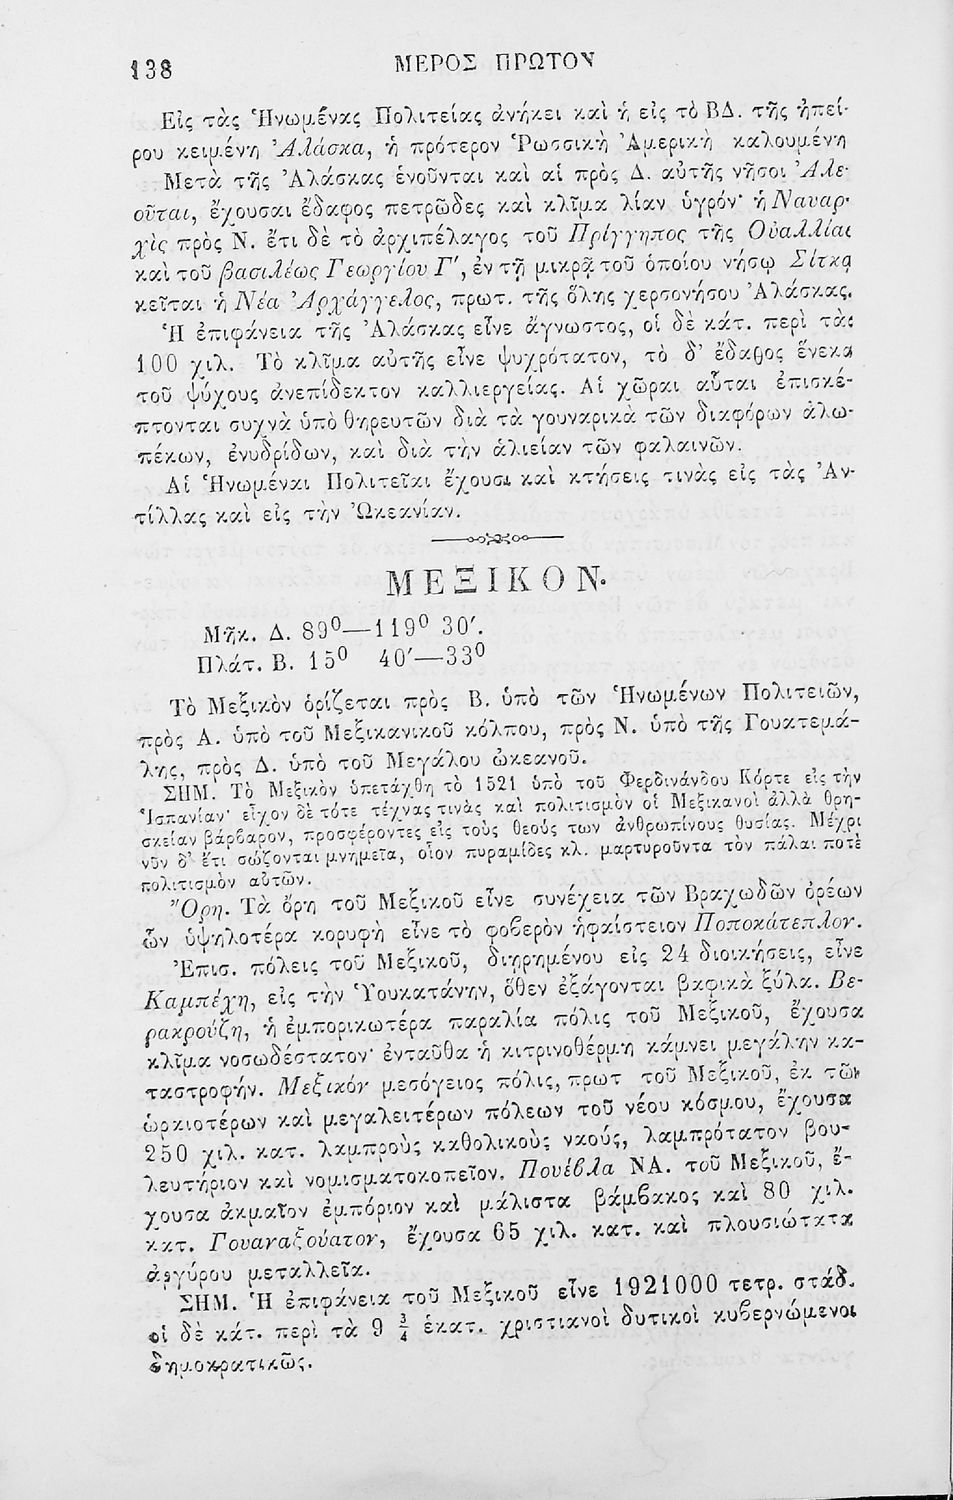 138
ΜΕΡΟΣ ΠΡΩΤΟΝ
Εἰς τὰς Ἡνωμένας Πολιτείας ἀνήκει καὶ ἡ εἰς τὸ ΒΔ. τῆς ἠπεί-
ρου κειμένη Ἀλάσκα, ἡ πρότερον Ῥωσσικὴ Ἀμερικὴ καλουμένη
Μετὰ τῆς Ἀλάσκας ἑνοῦνται καὶ αἱ πρὸς Δ. αὐτῆς νῆσοι Ἀλε-
οῦται, ἔχουσαι ἔδαφος πετρῶδες καὶ κλῖμα λίαν ὑγρόν· ἡ Ναυαρ-
χὶς πρὸς Ν. ἔτι δὲ τὸ ἀρχιπέλαγος τοῦ Πρίγγηπος τῆς Οὐαλλίας
καὶ τοῦ βασιλέως Γεωργίου Γ', ἐν τῇ μικρᾷ τοῦ ὁποίου νήσῳ Σίτκᾳ
κεῖται ἡ Νέα Ἀρχάγγελος, πρωτ. τῆς ὅλης χερσονήσου Ἀλάσκας.
Ἡ ἐπιφάνεια τῆς Ἀλάσκας εἶνε ἄγνωστος, οἱ δὲ κάτ. περὶ τὰς
100 χιλ. Τὸ κλῖμα αὐτῆς εἶνε ψυχρότατον, τὸ δ' ἔδαφος ἕνεκα
τοῦ ψύχους ἀνεπίδεκτον καλλιεργείας. Αἱ χῶραι αὗται ἐπισκέ-
πτονται συχνὰ ὑπὸ θηρευτῶν διὰ τὰ γουναρικὰ τῶν διαφόρων ἀλω-
πέκων, ἐνυδρίδων, καὶ διὰ τὴν ἁλιείαν τῶν φαλαινῶν.
Αἱ Ἡνωμέναι Πολιτεῖαι ἔχουσι καὶ κτήσεις τινὰς εἰς τὰς Ἀν-
τίλλας καὶ εἰς τὴν Ὠκεανίαν.
ΜΕΞΙΚΟΝ.
Μῆκ. Δ. 89⁰—119⁰ 30'.
Πλάτ. Β. 15⁰ 40'—33⁰
Τὸ Μεξικὸν ὁρίζεται πρὸς Β. ὑπὸ τῶν Ἡνωμένων Πολιτειῶν,
πρὸς Α. ὑπὸ τοῦ Μεξικανικοῦ κόλπου, πρὸς Ν. ὑπὸ τῆς Γουατεμά-
λης, πρὸς Δ. ὑπὸ τοῦ Μεγάλου ὠκεανοῦ.
ΣΗΜ. Τὸ Μεξικὸν ὑπετάχθη τὸ 1521 ὑπὸ τοῦ Φερδινάνδου Κόρτε εἰς τὴν
Ἱσπανίαν· εἶχον δὲ τότε τέχνας τινὰς καὶ πολιτισμὸν οἱ Μεξικανοὶ ἀλλὰ θρη-
σκείαν βάρβαρον, προσφέροντες εἰς τοὺς θεούς των ἀνθρωπίνους θυσίας. Μέχρι
νῦν δ' ἔτι σώζονται μνημεῖα, οἷον πυραμίδες κλ. μαρτυροῦντα τὸν πάλαι ποτὲ
πολιτισμὸν αὐτῶν.
Ὄρη. Τὰ ὄρη τοῦ Μεξικοῦ εἶνε συνέχεια τῶν Βραχωδῶν ὀρέων
ὧν ὑψηλοτέρα κορυφὴ εἶνε τὸ φοβερὸν ἡφαίστειον Ποποκάτεπλον.
Ἐπισ. πόλεις τοῦ Μεξικοῦ, διῃρημένου εἰς 24 διοικήσεις, εἶνε
Καμπέχη, εἰς τὴν Ὑουκατάνην, ὅθεν ἐξάγονται βαφικὰ ξύλα. Βε-
ρακρούζη, ἡ ἐμπορικωτέρα παραλία πόλις τοῦ Μεξικοῦ, ἔχουσα
κλῖμα νοσωδέστατον· ἐνταῦθα ἡ κιτρινοθέρμη κάμνει μεγάλην κα-
ταστροφήν. Μεξικόν μεσόγειος πόλις, πρωτ τοῦ Μεξικοῦ, ἐκ τῶν
ὡραιοτέρων καὶ μεγαλειτέρων πόλεων τοῦ νέου κόσμου, ἔχουσα
250 χιλ. κατ. λαμπροὺς καθολικοὺς ναούς, λαμπρότατον βου-
λευτήριον καὶ νομισματοκοπεῖον. Πουέβλα ΝΑ. τοῦ Μεξικοῦ, ἔ-
χουσα ἀκμαῖον ἐμπόριον καὶ μάλιστα βάμβακος καὶ 80 χιλ.
κατ. Γουαναξουάτον, ἔχουσα 65 χιλ. κατ. καὶ πλουσιώτατα
ἀργύρου μεταλλεῖα.
ΣΗΜ. Ἡ ἐπιφάνεια τοῦ Μεξικοῦ εἶνε 1921000 τετρ. στάδ.
οἱ δὲ κάτ. περὶ τὰ 9 ¾ ἑκατ. χριστιανοὶ δυτικοὶ κυβερνώμενοι
δημοκρατικῶς.